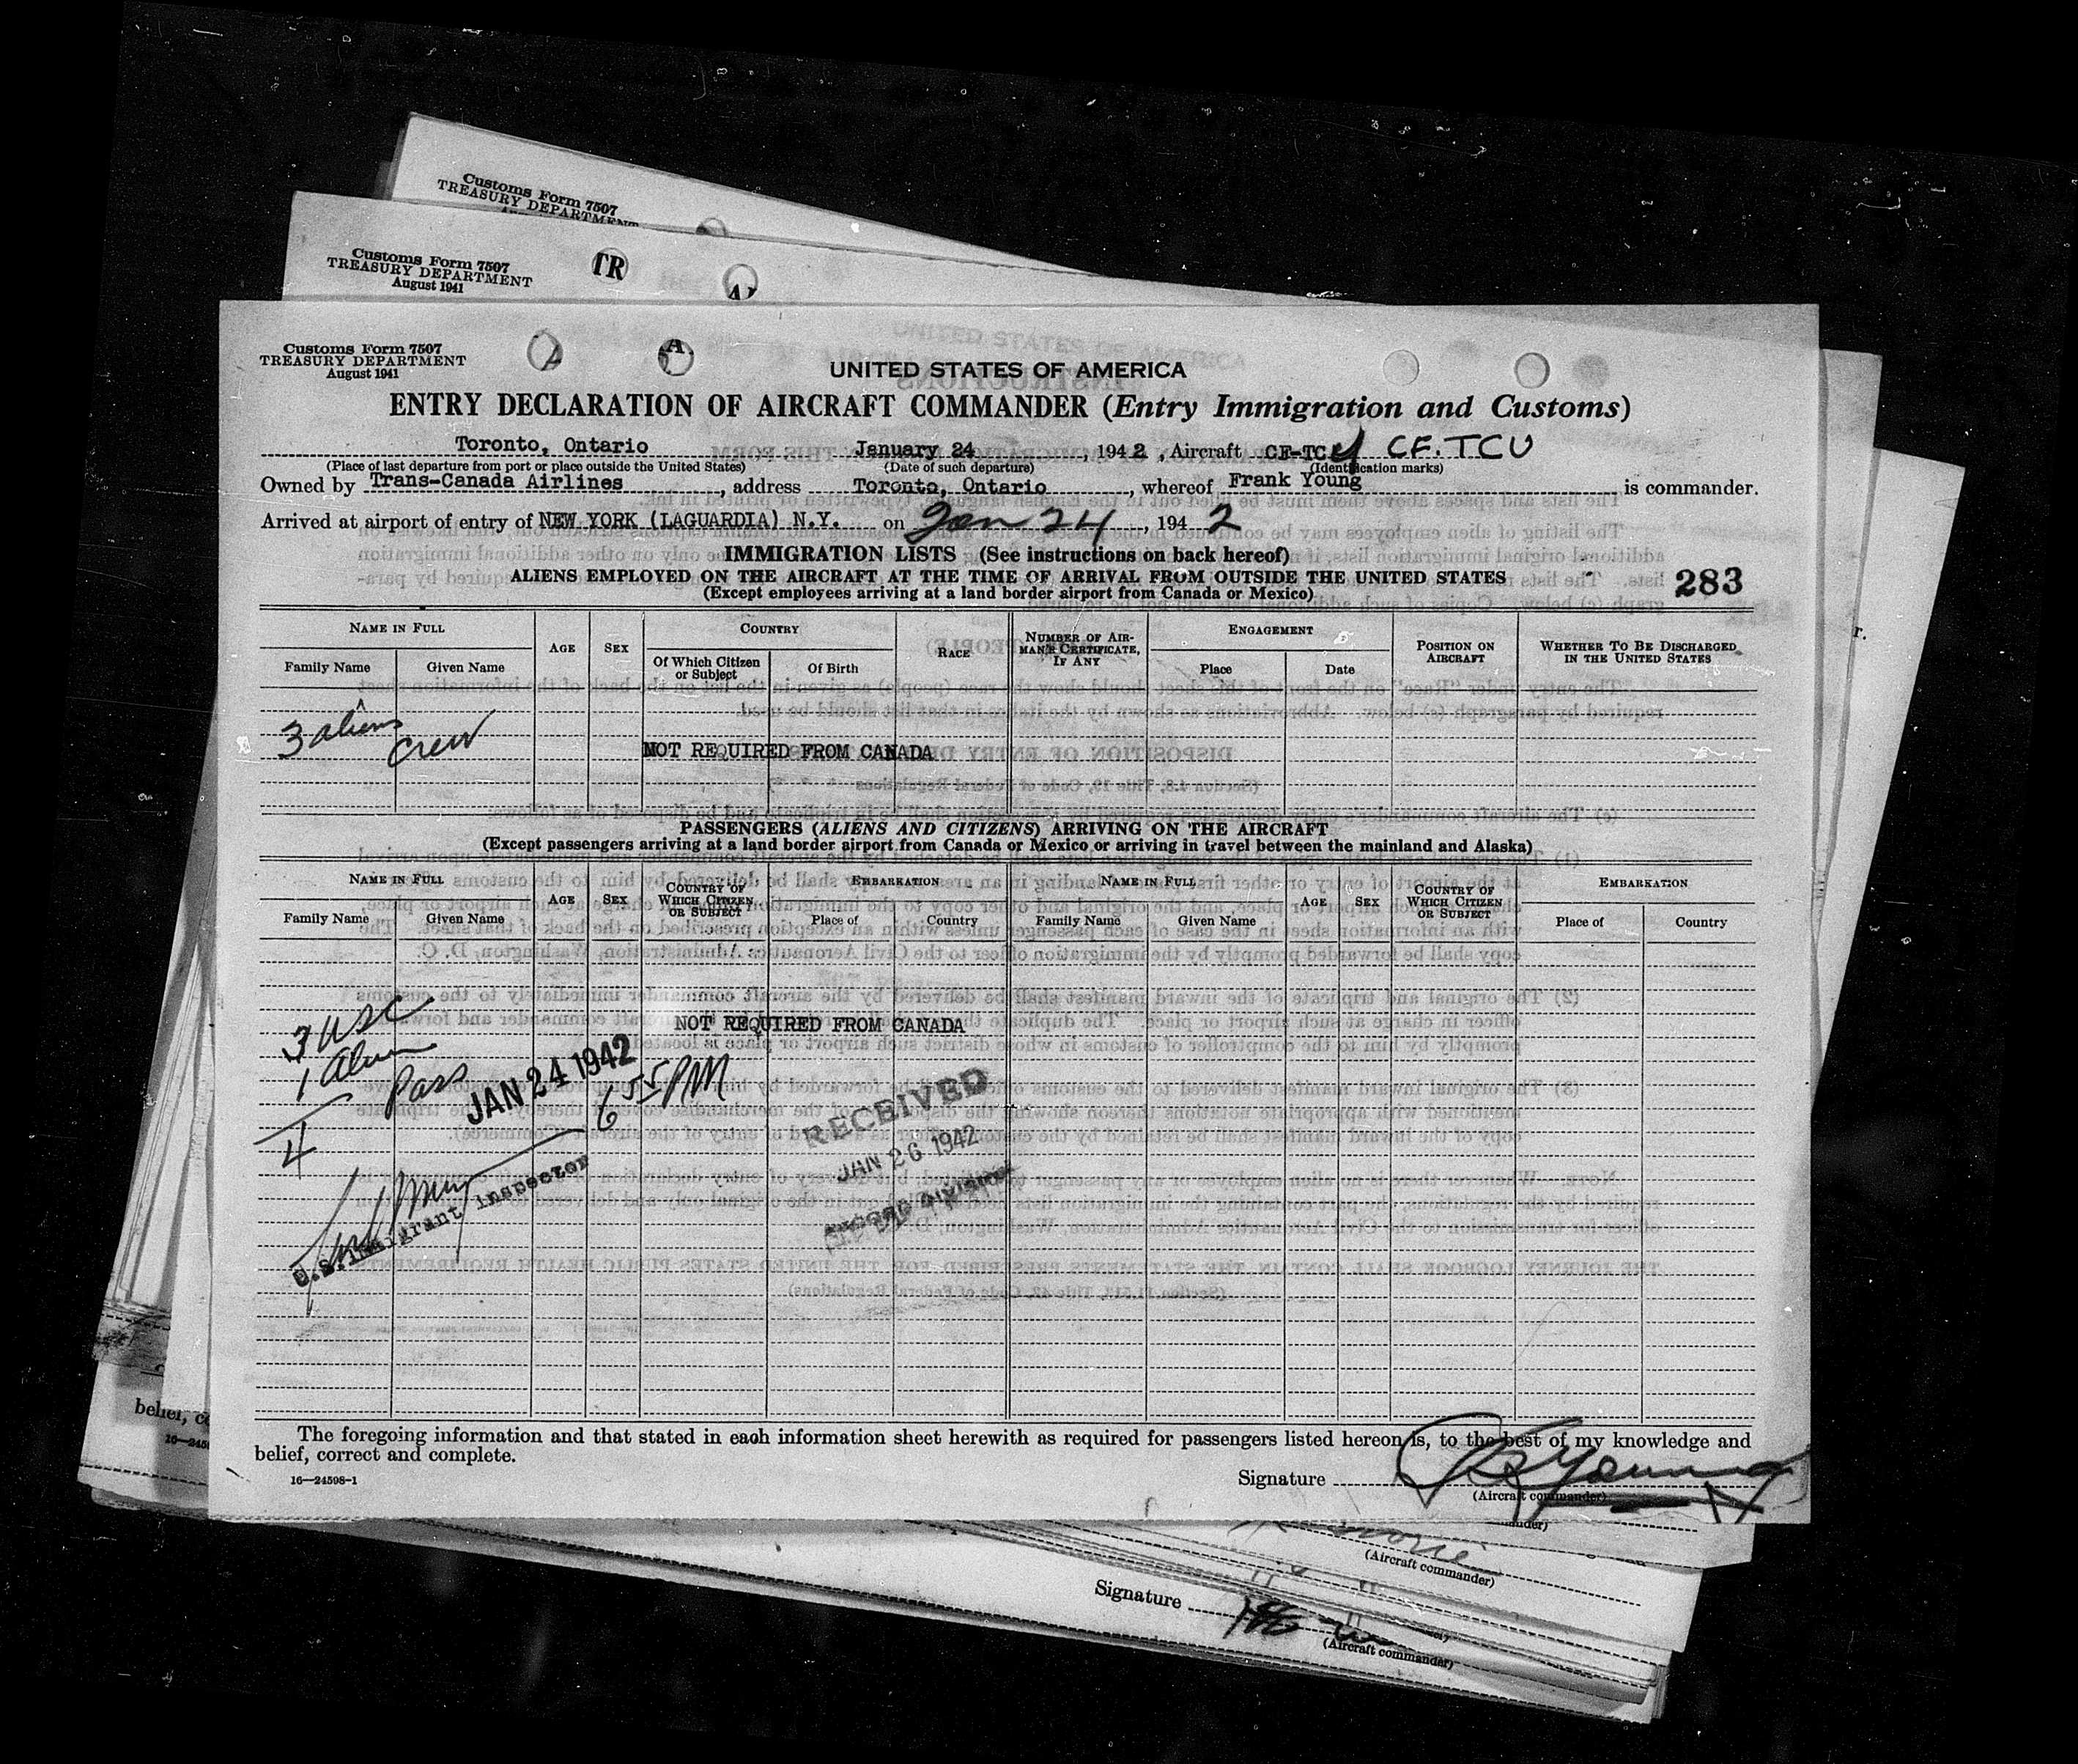 Customs Form 7507
TREASURY DEPARTMENT
Customs Form 7507
TREASURY DEPARTMENT
August 1941
TR
Customs Form 7507
TREASURY DEPARTMENT
August 1941
UNITED STATES OF AMERICA
ENTRY DECLARATION OF AIRCRAFT COMMANDER (Entry Immigration and Customs)
Toronto, Ontario January 24, 1942, Aircraft CF-TC CF.TCU
(Place of last departure from port or place outside the United States) (Date of such departure) (Identification marks)
Owned by Trans-Canada Airlines, address Toronto, Ontario, whereof Frank Young is commander.
Arrived at airport of entry of NEW YORK (LAGUARDIA) N.Y. on Jan 24, 1942
IMMIGRATION LISTS (See instructions on back hereof)
ALIENS EMPLOYED ON THE AIRCRAFT AT THE TIME OF ARRIVAL FROM OUTSIDE THE UNITED STATES
283
(Except employees arriving at a land border airport from Canada or Mexico)
NAME IN FULL AGE SEX COUNTRY RACE NUMBER OF AIRMAN'S CERTIFICATE, IF ANY ENGAGEMENT POSITION ON AIRCRAFT WHETHER TO BE DISCHARGED IN THE UNITED STATES
Family Name Given Name Of Which Citizen or Subject Of Birth Place Date
3 aliens
crew
NOT REQUIRED FROM CANADA
PASSENGERS (ALIENS AND CITIZENS) ARRIVING ON THE AIRCRAFT
(Except passengers arriving at a land border airport from Canada or Mexico or arriving in travel between the mainland and Alaska)
NAME IN FULL AGE SEX COUNTRY OF WHICH CITIZEN OR SUBJECT EMBARKATION NAME IN FULL AGE SEX COUNTRY OF WHICH CITIZEN OR SUBJECT EMBARKATION
Family Name Given Name Place of Country Family Name Given Name Place of Country
3 USC
NOT REQUIRED FROM CANADA
1 Alien
Pass
4
JAN 24 1942
6 55 PM
RECEIVED
JAN 26 1942
RECORD DIVISION
U.S. Immigrant Inspector
The foregoing information and that stated in each information sheet herewith as required for passengers listed hereon is, to the best of my knowledge and
belief, correct and complete.
16—24598-1
Signature F Young
(Aircraft commander)
(Aircraft commander)
Signature
(Aircraft commander)